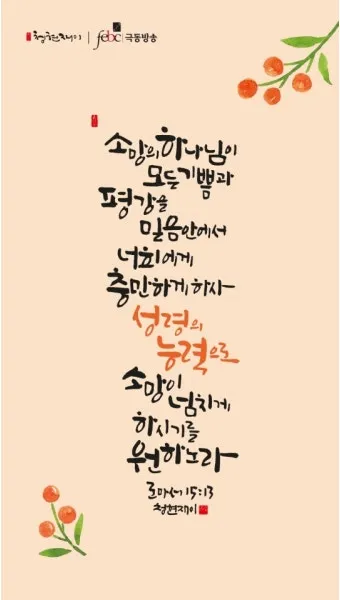 청현재이 | febc 극동방송
소망의 하나님이
모든 기쁨과
평강을
믿음 안에서
너희에게
충만하게 하사
성령의
능력으로
소망이
넘치게
하시기를
원하노라
로마서 15:13
청현재이